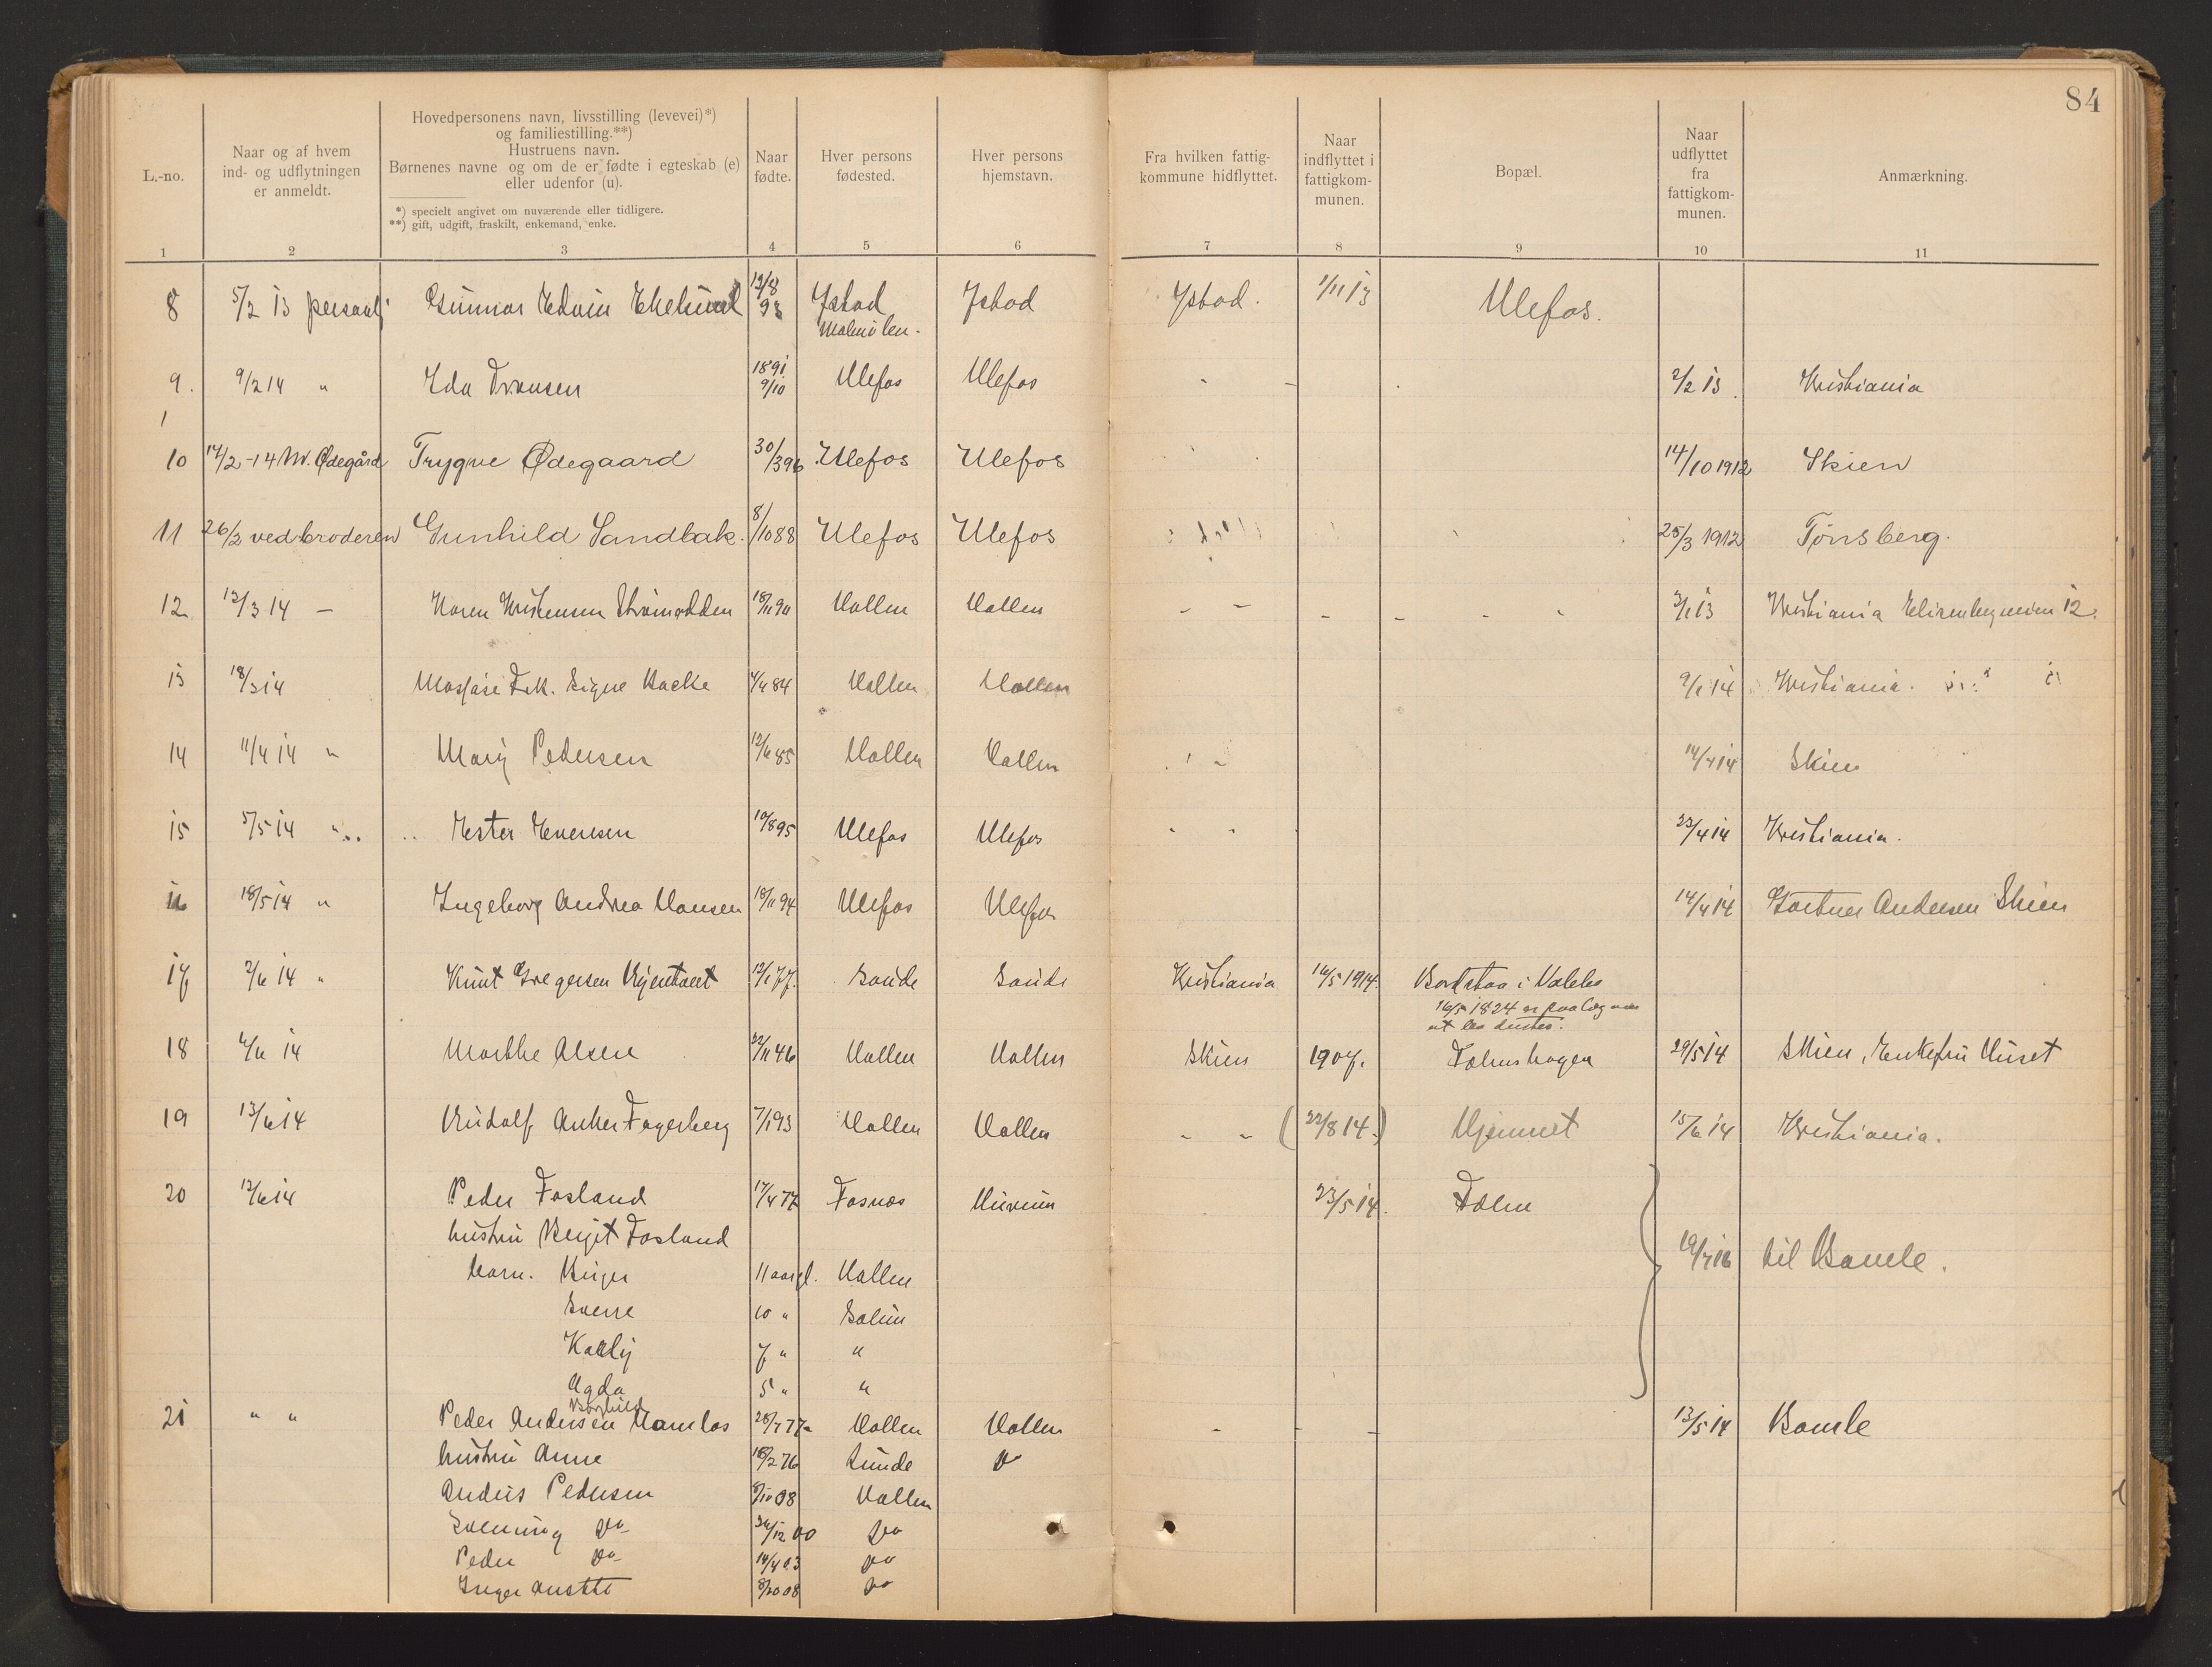 84
L.-no. Naar og af hvem ind- og udflytningen er anmeldt. Hovedpersonens navn, livsstilling (levevei)*) og familiestilling.**) Hustruens navn. Børnenes navne og om de er fødte i egteskab (e) eller udenfor (u). Naar fødte. Hver persons fødested. Hver persons hjemstavn. Fra hvilken fattigkommune hidflyttet. Naar indflyttet i fattigkommunen. Bopæl. Naar udflyttet fra fattigkommunen. Anmærkning.
*) specielt angivet om nuværende eller tidligere.
**) gift, udgift, fraskilt, enkemand, enke.
1 2 3 4 5 6 7 8 9 10 11
8 5/2 13 personl. Gunnar Edvin Ekelund 13/8 93 Ystad Ystad Ystad. 1/11 13 Ulefos.
Malmö len.
9. 9/2 14 " Ida Fransen 1891 9/10 Ulefos Ulefos - - 2/2 13 Kristiania
10 14/2-14 Ødegård Trygve Ødegaard 30/3 96 Ulefos Ulefos 14/10 1912 Skien
11 26/2 ved broderen Gunhild Sandbak. 8/10 88 Ulefos Ulefos 25/3 1912 Tønsberg.
12 12/3 14 - Karen Kristensen 18/11 90 Hollen Hollen - - - - - 3/1 13 Kristiania 12.
13 18/3 14 Frk. Signe Bache 4/4 84 Hollen Hollen 9/1 14 Kristiania.
14 11/4 14 " Mary Pedersen 12/6 85 Hollen Hollen 14/4 14 Skien
15 5/5 14 " Ester Evensen 10/8 95 Ulefos Ulefos 23/4 14 Kristiania.
16 18/5 14 " Ingeborg Andrea Hansen 18/11 94 Ulefos Ulefos 14/4 14 Gartner Andersen Skien
17 2/6 14 " Knut Gregersen 12/1 77. Sande Sande Kristiania 16/5 1914.
18 4/6 14 Marthe Olsen 22/11 46 Hollen Hollen Skien 1907. Holmshagen 29/5 14 Skien, Enkefru Huset
19 13/6 14 Rudolf Anker Fagerberg 7/1 93 Hollen Hollen - - (22/8 14.) Hjemmet 15/6 14 Kristiania.
20 12/6 14 Peder Fosland 17/4 77 Fosnæs 23/5 14. Holm
hustru Birgit Fosland
barn. Birger 11 aar gl. Hollen 19/7 16 til Bamle.
Sverre 10 " Solum
Kally 7 " "
Agda 5 " "
Borghild
21 " " Peder Andersen Namlos 28/7 77 Hollen Hollen - - - 13/5 14 Bamle
hustru Anne 18/2 76 Lunde do
Anders Pedersen 8/10 98 Hollen
do 30/12 00 do
Peder do 14/4 03 do
Inger 8/10 08 do